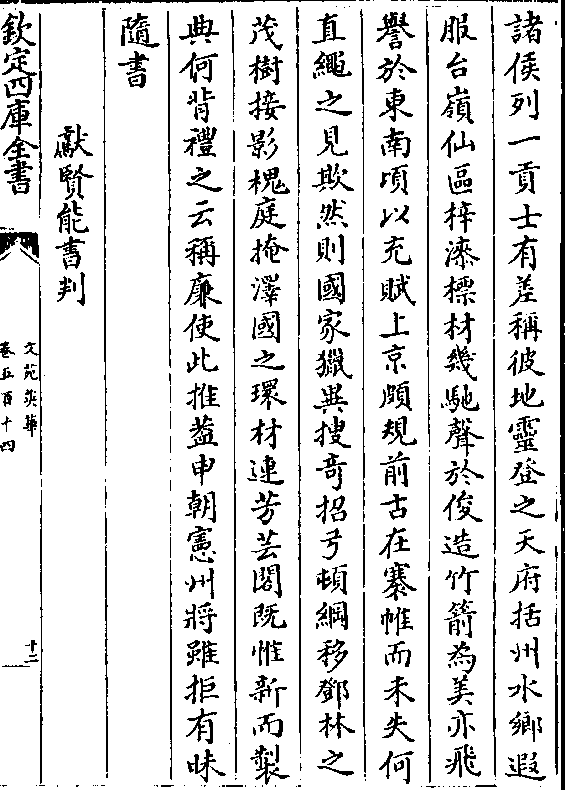 諸侯列一貢士有差稱彼地靈登之天府括州水鄉遐
服台嶺仙區梓漆標材幾馳聲於俊造竹箭為美亦飛
譽於東南頃以充賦上京頗規前古在褰帷而未失何
直繩之見欺然則國家獵異搜竒招弓頓綱移鄧林之
茂樹接影槐庭掩澤國之環材連芳芸閣旣惟新而製
典何背禮之云稱廉使此推葢申朝憲州將雖拒有昧
隨書
獻賢能書判
欽定四庫全書
文苑英華
卷五百十四
十二